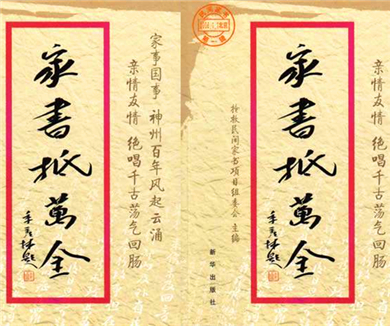 亲情友情 绝唱千古荡气回肠
家書抵萬金
季羡林题
抢救民间家书项目组委会 主编
新华出版社
家事国事 神州百年风起云涌
亲情友情 绝唱千古荡气回肠
家書抵萬金
季羡林题